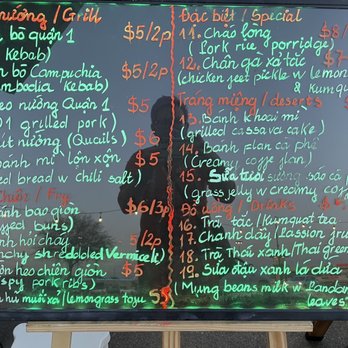 ướng / Grill
bò quận 1 $5/2p
kebab)
bò Campuchia $5/2p
mbodia kebab)
eo nướng Quận 1 $5
1 grilled pork)
út nướng (Quails) $6
ánh mì lộn xộn $5
ed bread w chili salt)
/ Fry
ánh bao giòn $6/3p
buns)
ánh hỏi cháy 5/2p
nchy shredded Vermice
on heo chiên giòn $5
spy pork ribs)
hủ muối xả / lemongrass tofu 5$
Đặc biệt / Special
11. Cháo lòng $8/
(Pork rice porridge)
12. Chân gà xả tắc $7
(chicken feet pickle w lemon
& kumqu
Tráng miệng / deserts
13. Bánh khoai mì
(grilled cassava cake)
14. Bánh flan cà phê
(Creamy coffe flan)
15. Sữa tươi sương sáo cà p
(grass jelly w creamy coff
Đồ uống / Drinks
16. Trà tắc / Kumquat tra
17. Chanh dây / Passion jru
18. Trà Thái xanh / Thai green
19. Sữa đậu xanh lá dứa
(Mung beans milk w Pandan
leaves